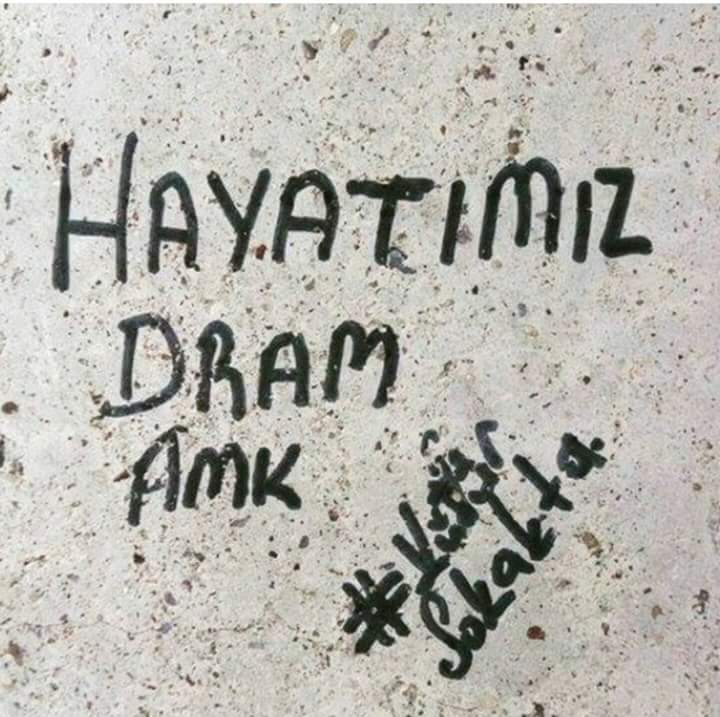 HAYATIMIZ
DRAM
AMK
#
Sokakta